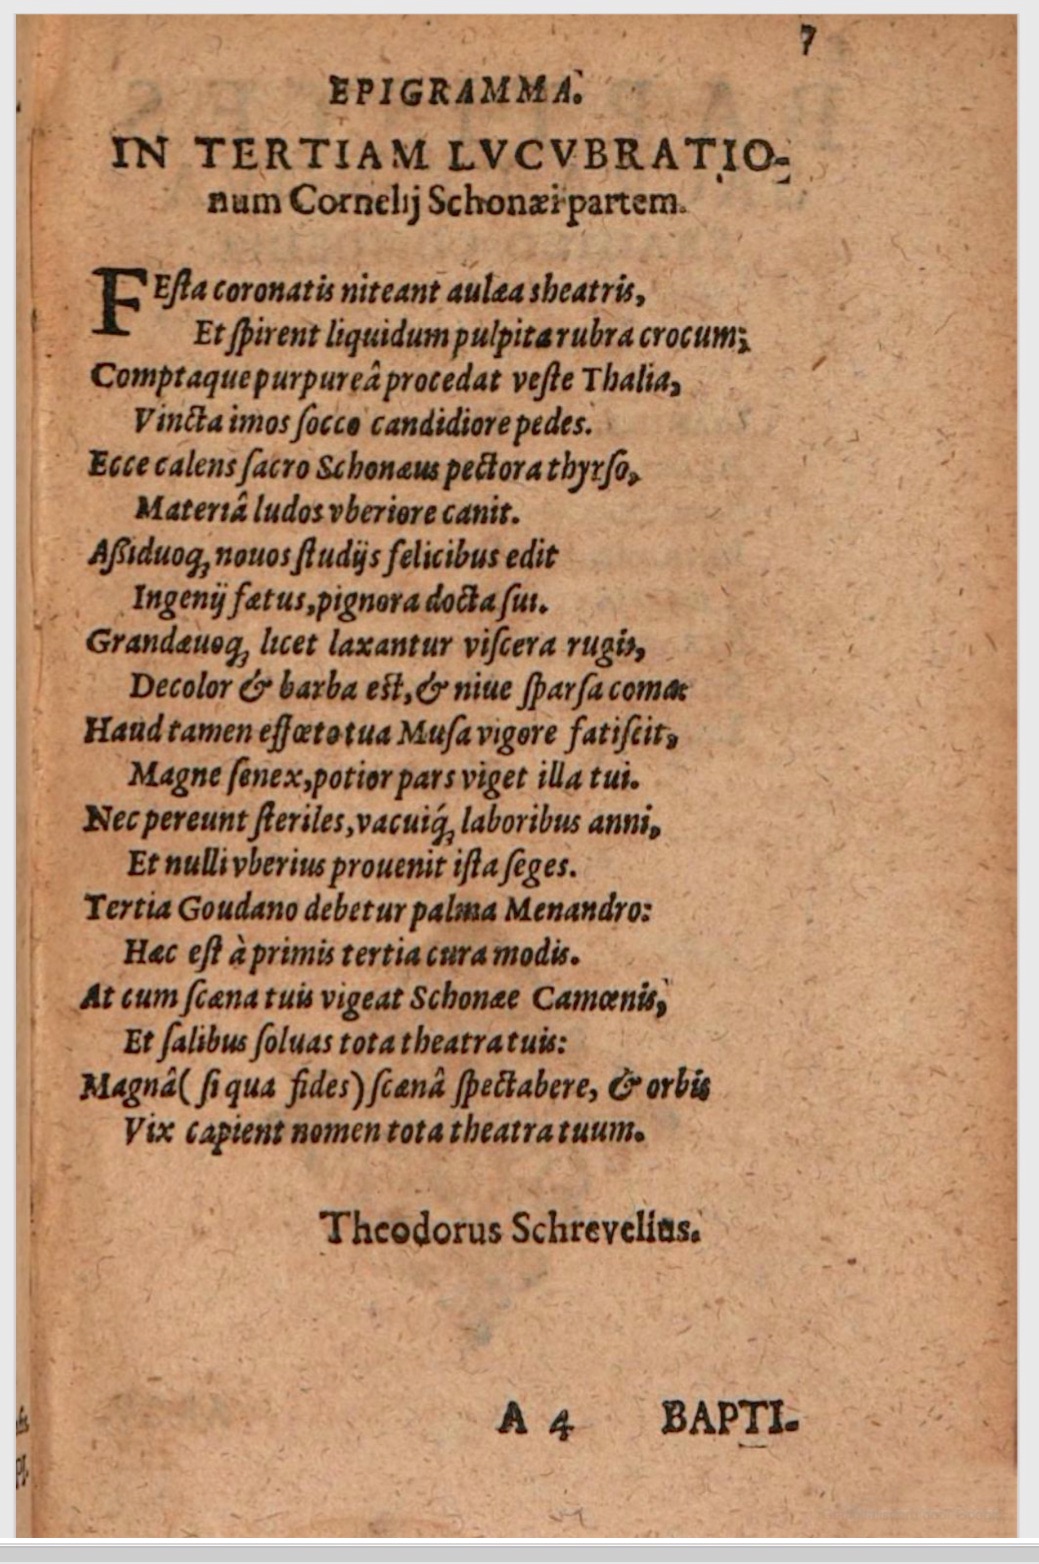 7
EPIGRAMMA.
IN TERTIAM LVCVBRATIO-
num Cornelij Schonæi partem.
FEſta coronatis niteant aulæa sheatris,
Et ſpirent liquidum pulpita rubra crocum;
Comptaque purpureâ procedat veſte Thalia,
Vincta imos ſocco candidiore pedes.
Ecce calens ſacro Schonæus pectora thyrſo,
Materiâ ludos vberiore canit.
Aßiduoq, nouos ſtudijs felicibus edit
Ingenij fætus, pignora docta ſui.
Grandæuoq, licet laxantur viſcera rugis,
Decolor & barba est, & niue ſparſa comæ
Haud tamen effœto tua Muſa vigore fatiſcit,
Magne ſenex, potior pars viget illa tui.
Nec pereunt ſteriles, vacuiq́, laboribus anni,
Et nulli vberius prouenit iſta ſeges.
Tertia Goudano debetur palma Menandro:
Hæc eſt à primis tertia cura modis.
At cum ſcæna tuis vigeat Schonæe Camœnis,
Et ſalibus ſoluas tota theatra tuis:
Magnâ( ſi qua fides) ſcænâ ſpectabere, & orbis
Vix capient nomen tota theatra tuum.
Theodorus Schrevelius.
A 4 BAPTI-